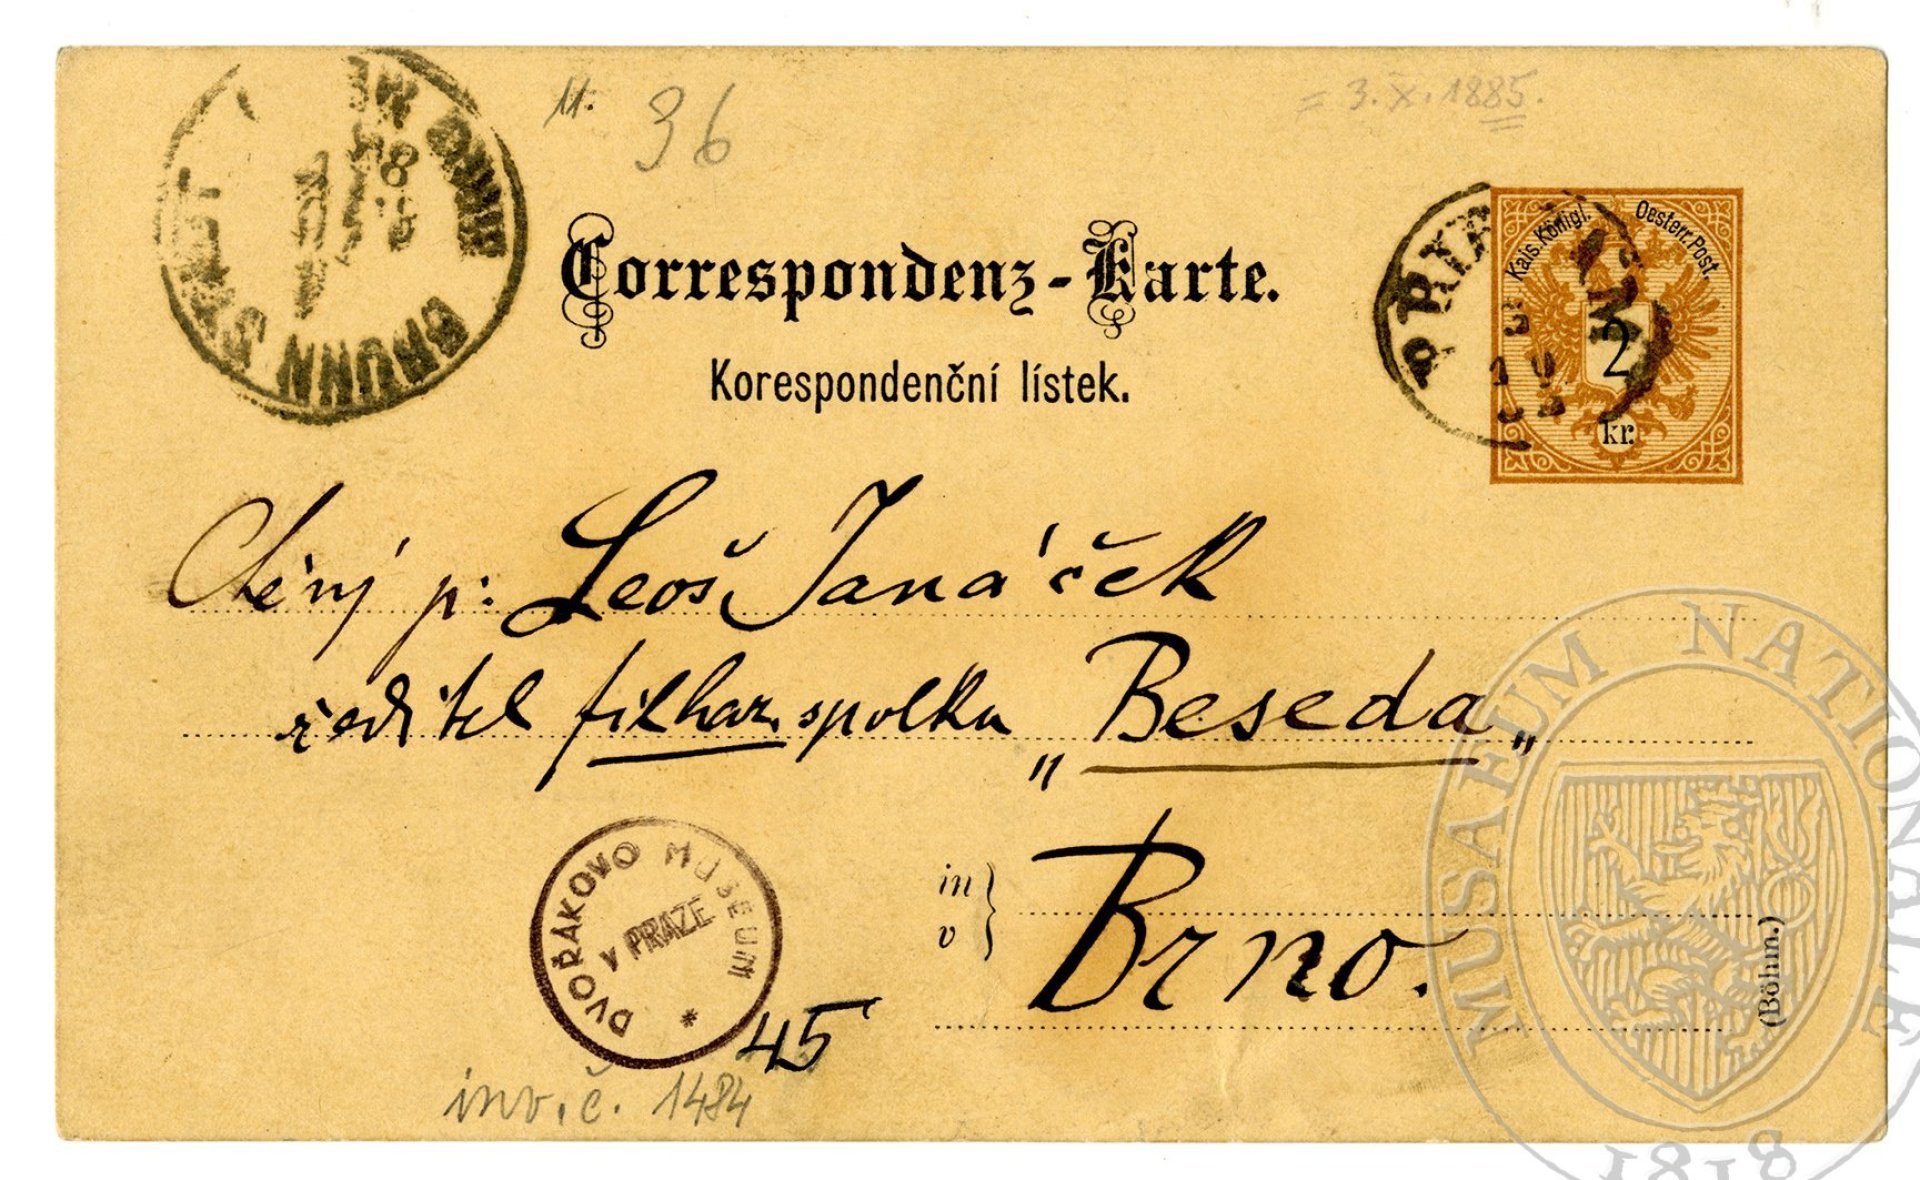 36
= 3. X. 1885.
BRÜNN STADT
Correspondenz-Karte.
Korespondenční lístek.
Kais. Königl. Oesterr. Post.
2
kr.
Ctěný p: Leoš Janáček
ředitel filhar. spolku „Beseda„
in
v
Brno.
(Böhm.)
DVOŘÁKOVO MUSEUM
v PRAZE
*
45
inv. č. 1484
MUSAEUM NATIONALE
1818